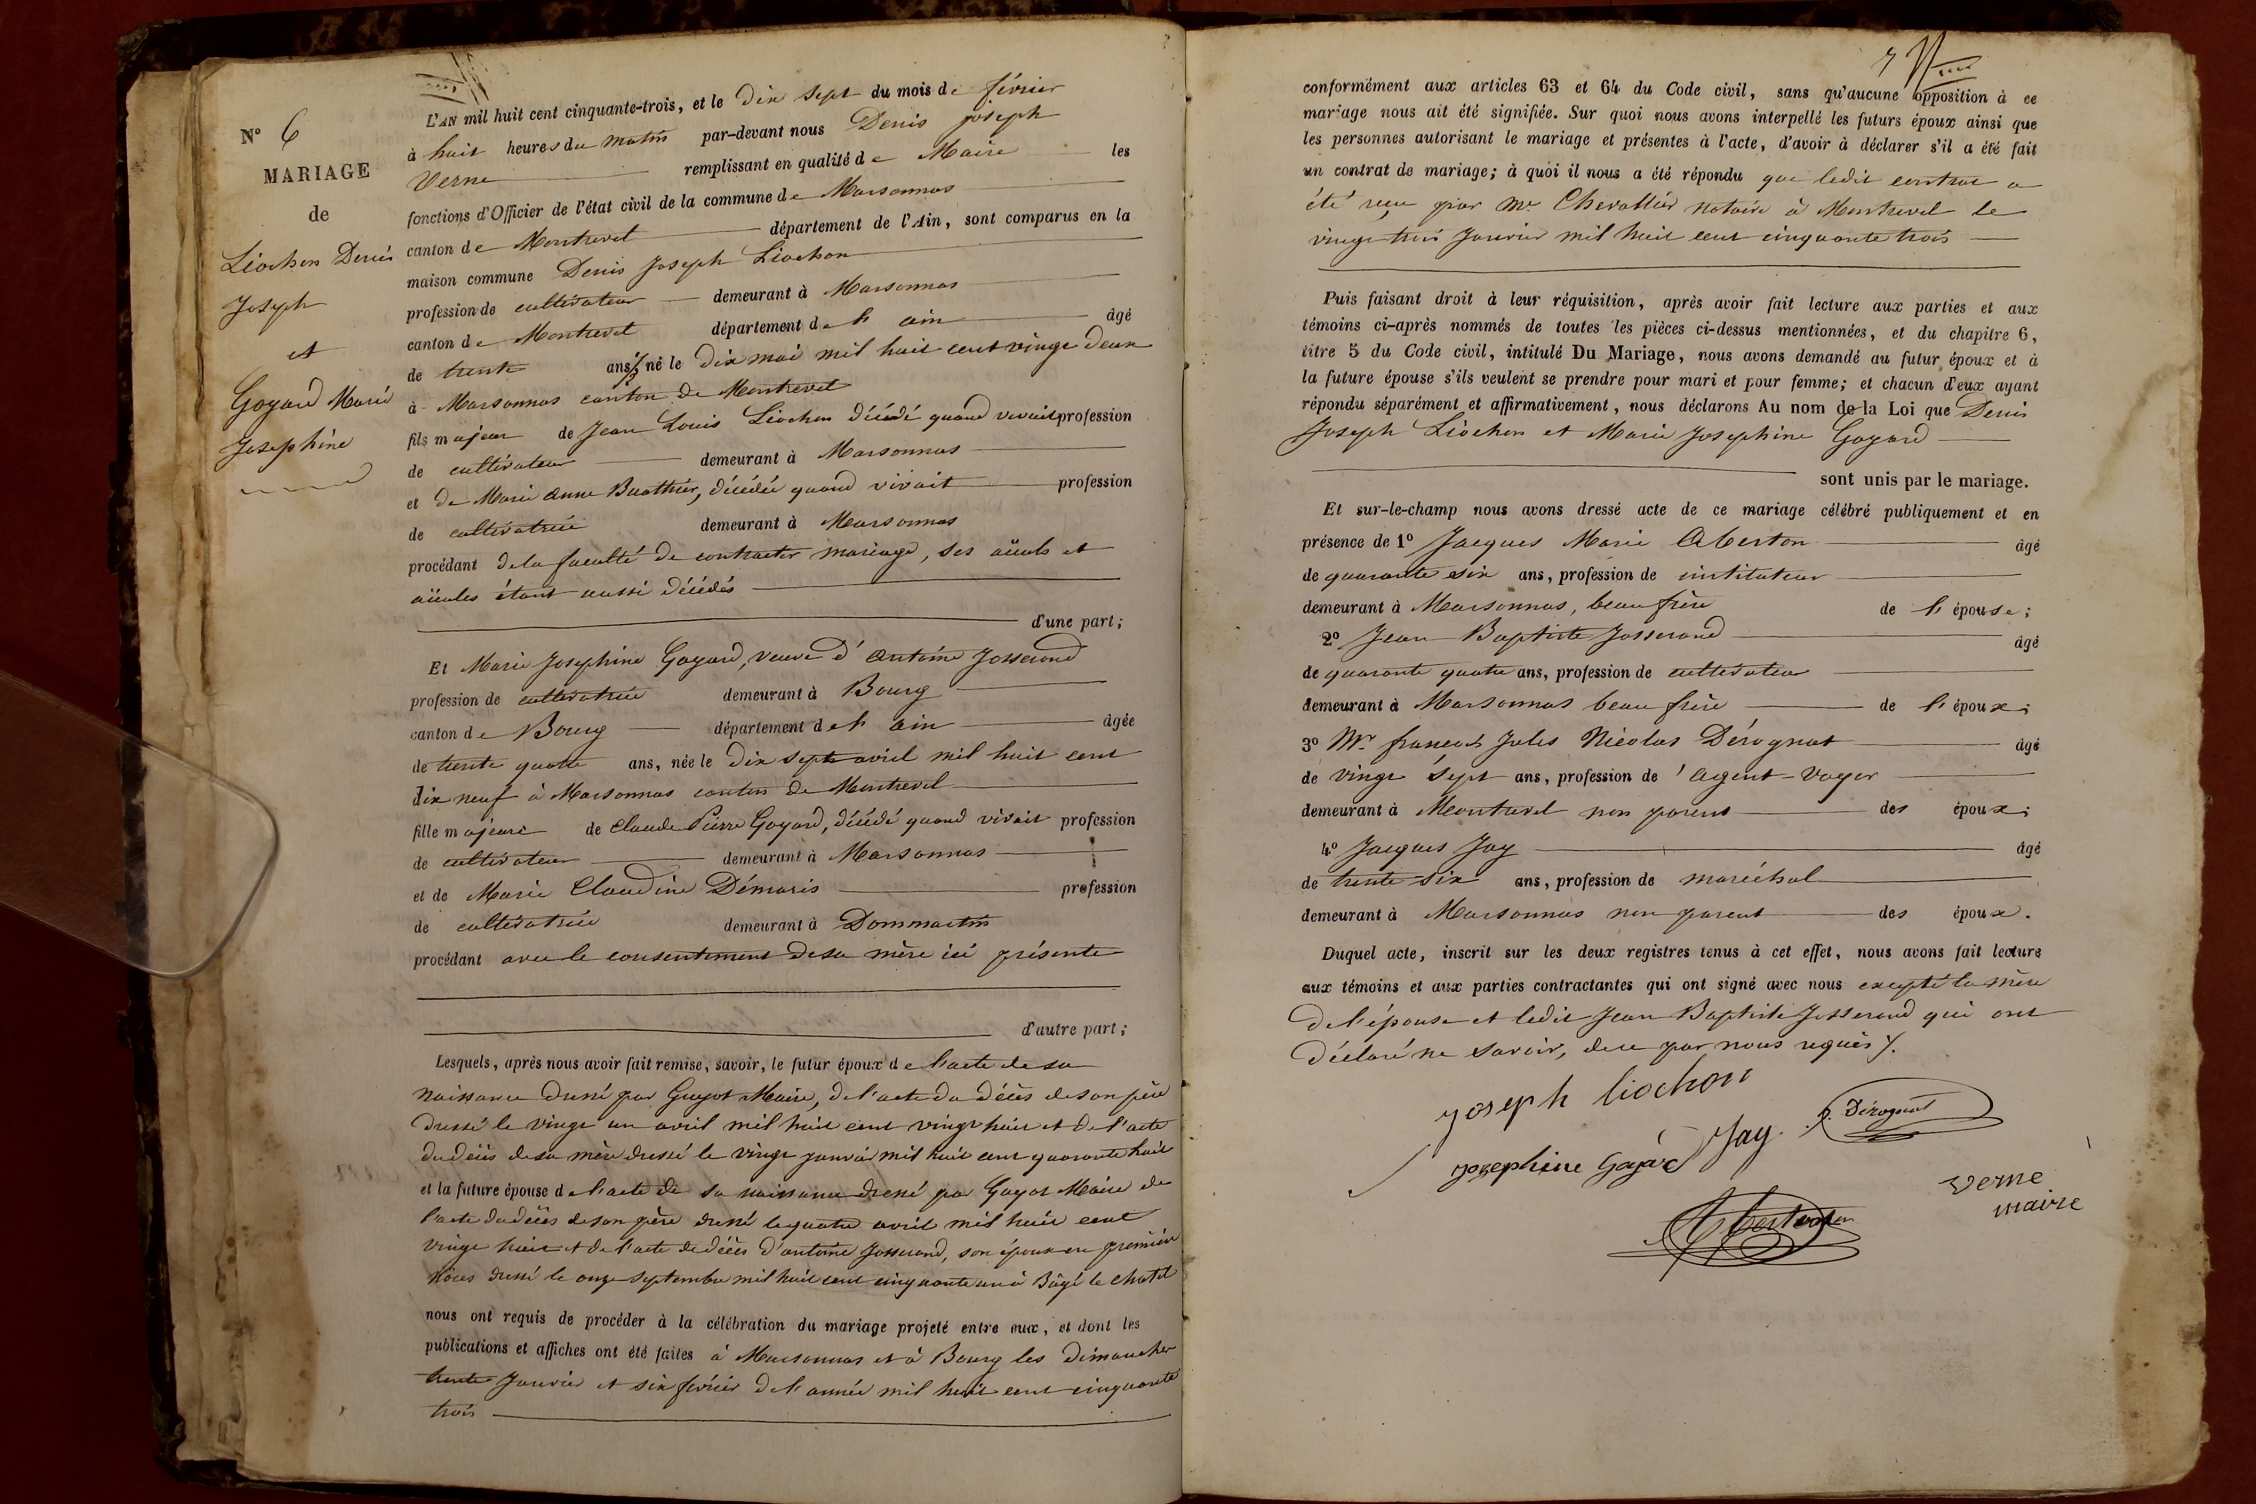 N° 6
MARIAGE
de
Liochon Denis
Joseph
et
Goyard Marie
Josephine
L'AN mil huit cent cinquante-trois, et le Dix sept du mois de février
à huit heures du matin par-devant nous Denis joseph
Verne remplissant en qualité de Maire les
fonctions d'Officier de l'état civil de la commune de Marsonnas
canton de Montrevel département de l'Ain, sont comparus en la
maison commune Denis Joseph Liochon
profession de cultivateur demeurant à Marsonnas
canton de Montrevel département de l'ain âgé
de trente ans né le Dix mai mil huit cent vingt deux
à Marsonnas canton de Montrevel
fils majeur de Jean Louis Liochon décédé quand vivait profession
de cultivateur demeurant à Marsonnas
et de Marie Anne Buathier, décédée quand vivait profession
de cultivatrice demeurant à Marsonnas
procédant de la faculté de contracter mariage, ses aïeuls et
aïeules étant aussi décédés
d'une part;
Et Marie Josephine Goyard, veuve d'Antoine Josserand
profession de cultivatrice demeurant à Bourg
canton de Bourg département de l'ain âgée
de trente quatre ans, née le dix sept avril mil huit cent
dix neuf à Marsonnas canton de Montrevel
fille majeure de Claude Pierre Goyard, décédé quand vivait profession
de cultivateur demeurant à Marsonnas
et de Marie Claudine Démaris profession
de cultivatrice demeurant à Dommartin
procédant avec le consentement de sa mère ici présente
d'autre part;
Lesquels, après nous avoir fait remise, savoir, le futur époux de l'acte de sa
naissance dressé par Guyot Maire, de l'acte du décès de son père
dressé le vingt un avril mil huit cent vingt huit et de l'acte
du décès de sa mère dressé le vingt janvier mil huit cent quarante huit
et la future épouse de l'acte de sa naissance dressé par Guyot Maire de
l'acte du décès de son père dressé le quatre avril mil huit cent
vingt huit et de l'acte de décès d'antoine Josserand, son époux en premières
nôces dressé le onze septembre mil huit cent cinquante un à Bâgé le chatel
nous ont requis de procéder à la célébration du mariage projeté entre eux, et dont les
publications et affiches ont été faites à Marsonnas et à Bourg les dimanches
trente Janvier et six février de l'année mil huit cent cinquante
trois
7
conformément aux articles 63 et 64 du Code civil, sans qu'aucune opposition à ce
mariage nous ait été signifiée. Sur quoi nous avons interpellé les futurs époux ainsi que
les personnes autorisant le mariage et présentes à l'acte, d'avoir à déclarer s'il a été fait
un contrat de mariage; à quoi il nous a été répondu que ledit contrat a
été reçu par Me Chevallier notaire à Montrevel le
vingt trois Janvier mil huit cent cinquante trois
Puis faisant droit à leur réquisition, après avoir fait lecture aux parties et aux
témoins ci-après nommés de toutes les pièces ci-dessus mentionnées, et du chapitre 6,
titre 5 du Code civil, intitulé Du Mariage, nous avons demandé au futur époux et à
la future épouse s'ils veulent se prendre pour mari et pour femme; et chacun d'eux ayant
répondu séparément et affirmativement, nous déclarons Au nom de la Loi que Denis
Joseph Liochon et Marie Josephine Goyard
sont unis par le mariage.
Et sur-le-champ nous avons dressé acte de ce mariage célébré publiquement et en
présence de 1° Jacques Marie Alberton âgé
de quarante six ans, profession de instituteur
demeurant à Marsonnas, beau frère de l'épouse;
2° Jean Baptiste Josserand âgé
de quarante quatre ans, profession de cultivateur
demeurant à Marsonnas beau frère de l'époux;
3° Mr françois Jules Nicolas Dérognat âgé
de vingt sept ans, profession de Agent-Voyer
demeurant à Montrevel non parent des époux;
4° Jacques Jay âgé
de trente-six ans, profession de maréchal
demeurant à Marsonnas non parent des époux.
Duquel acte, inscrit sur les deux registres tenus à cet effet, nous avons fait lecture
aux témoins et aux parties contractantes qui ont signé avec nous excepté la mère
de l'épouse et ledit Jean Baptiste Josserand qui ont
déclaré ne savoir, de ce par nous requis.
joseph liochon
Jay. Dérognat
josephine Goyard
verne
maire